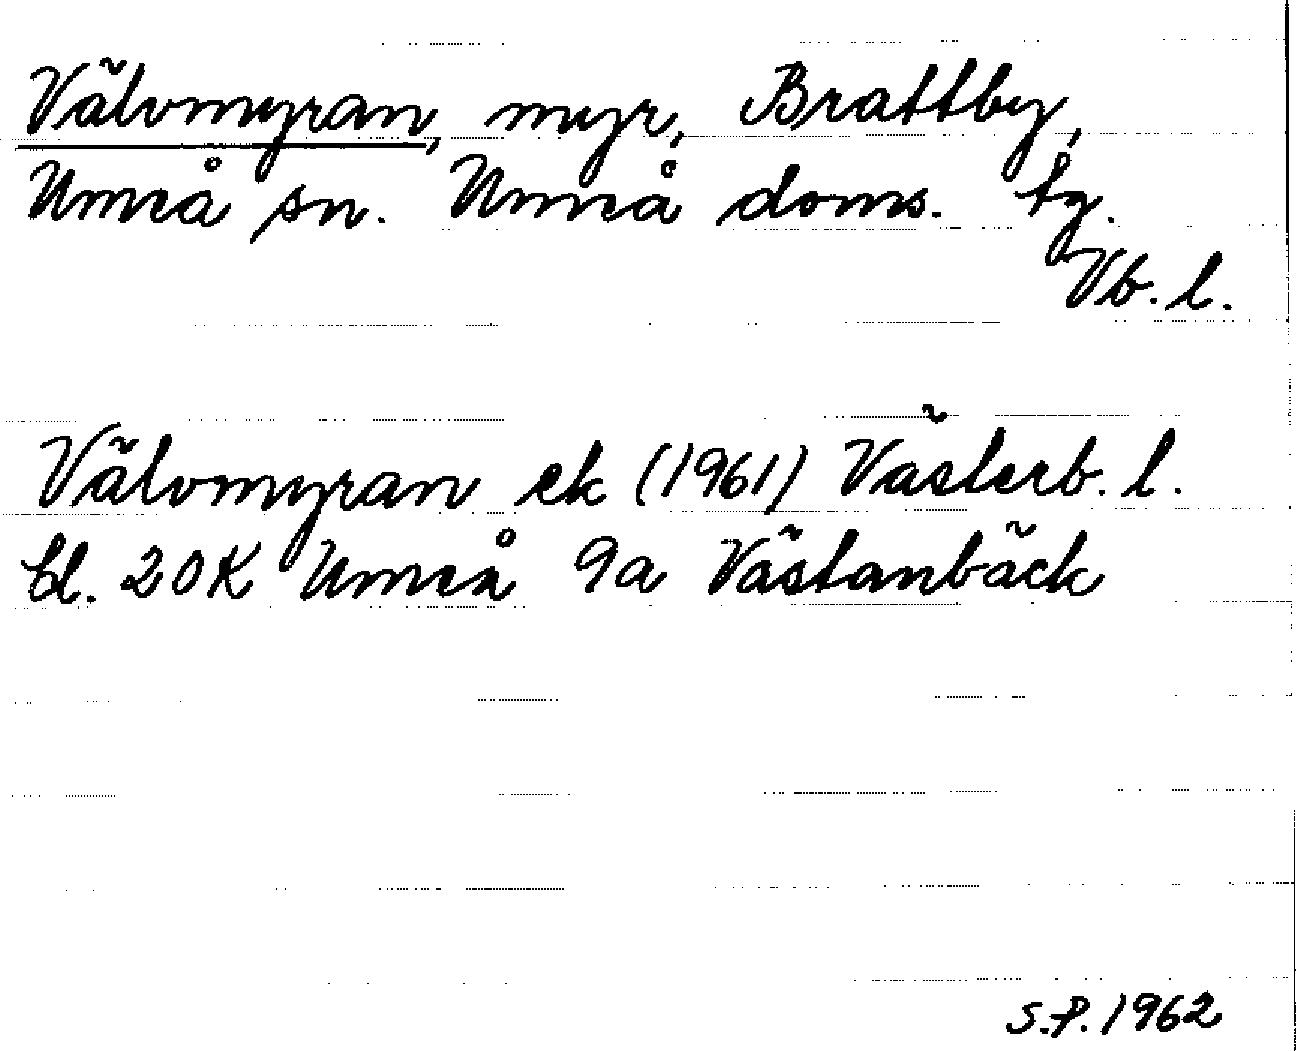 Välvmyran, myr, Brattby,
Umeå sn. Umeå doms. tg.
Vb. l.
Välvmyran ek (1961) Västerb. l.
bl. 20K Umeå 9a Västanbäck
S.P. 1962